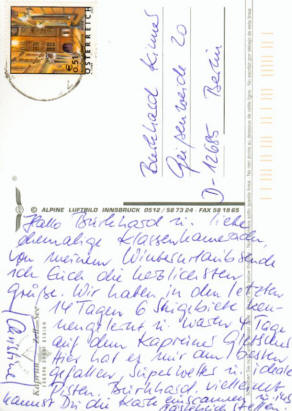 € 0.51
ÖSTERREICH
Burkhard Kirmes
Geißenweide 20
D-12685 Berlin
© ALPINE LUFTBILD INNSBRUCK 0512 / 58 73 24 · FAX 58 18 65
Hallo Burkhard u. liebe
ehemalige Klassenkameraden,
von meinem Winterurlaubsende
ich Euch die herzlichsten
Grüße. Wir haben in den letzten
14 Tagen 6 Skigebiete ken-
nengelernt u. waren 4 Tage
auf dem Kapruner Gletscher
Hier hat es mir am besten
gefallen, Superwetter u. ideale
Pisten. Burkhard, vielleicht
kannst Du die Karte einscannen u. ins
Kaprun